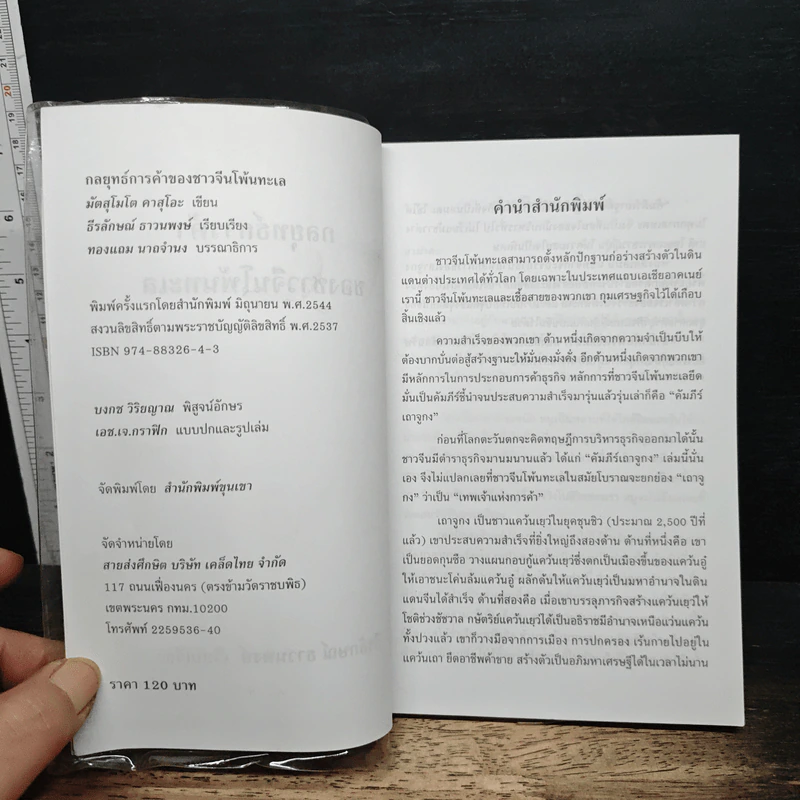 กลยุทธ์การค้าของชาวจีนโพ้นทะเล
มัตสุโมโต คาสุโอะ เขียน
ธีรลักษณ์ ธาวนพงษ์ เรียบเรียง
ทองแถม นาถจำนง บรรณาธิการ
พิมพ์ครั้งแรกโดยสำนักพิมพ์ มิถุนายน พ.ศ.2544
สงวนลิขสิทธิ์ตามพระราชบัญญัติลิขสิทธิ์ พ.ศ.2537
ISBN 974-88326-4-3
บงกช วิริยญาณ พิสูจน์อักษร
เอช.เจ.กราฟิก แบบปกและรูปเล่ม
จัดพิมพ์โดย สำนักพิมพ์ขุนเขา
จัดจำหน่ายโดย
สายส่งศึกษิต บริษัท เคล็ดไทย จำกัด
117 ถนนเฟื่องนคร (ตรงข้ามวัดราชบพิธ)
เขตพระนคร กทม.10200
โทรศัพท์ 2259536-40
ราคา 120 บาท
คำนำสำนักพิมพ์
ชาวจีนโพ้นทะเลสามารถตั้งหลักปักฐานก่อร่างสร้างตัวในดิน
แดนต่างประเทศได้ทั่วโลก โดยเฉพาะในประเทศแถบเอเชียอาคเนย์
เรานี้ ชาวจีนโพ้นทะเลและเชื้อสายของพวกเขา กุมเศรษฐกิจไว้ได้เกือบ
สิ้นเชิงแล้ว
ความสำเร็จของพวกเขา ด้านหนึ่งเกิดจากความจำเป็นบีบให้
ต้องบากบั่นต่อสู้สร้างฐานะให้มั่นคงมั่งคั่ง อีกด้านหนึ่งเกิดจากพวกเขา
มีหลักการในการประกอบการค้าธุรกิจ หลักการที่ชาวจีนโพ้นทะเลยึด
มั่นเป็นคัมภีร์ชี้นำจนประสบความสำเร็จมารุ่นแล้วรุ่นเล่าก็คือ “คัมภีร์
เถาจูกง”
ก่อนที่โลกตะวันตกจะคิดทฤษฎีการบริหารธุรกิจออกมาได้นั้น
ชาวจีนมีตำราธุรกิจมานมนานแล้ว ได้แก่ “คัมภีร์เถาจูกง” เล่มนี้นั่น
เอง จึงไม่แปลกเลยที่ชาวจีนโพ้นทะเลในสมัยโบราณจะยกย่อง “เถาจู
กง” ว่าเป็น “เทพเจ้าแห่งการค้า”
เถาจูกง เป็นชาวแคว้นเยว่ในยุคชุนชิว (ประมาณ 2,500 ปีที่
แล้ว) เขาประสบความสำเร็จที่ยิ่งใหญ่ถึงสองด้าน ด้านที่หนึ่งคือ เขา
เป็นยอดกุนซือ วางแผนกอบกู้แคว้นเยว่ซึ่งตกเป็นเมืองขึ้นของแคว้นอู๋
ให้เอาชนะโค่นล้มแคว้นอู๋ ผลักดันให้แคว้นเยว่เป็นมหาอำนาจในดิน
แดนจีนได้สำเร็จ ด้านที่สองคือ เมื่อเขาบรรลุภารกิจสร้างแคว้นเยว่ให้
โชติช่วงชัชวาล กษัตริย์แคว้นเยว่ได้เป็นอธิราชมีอำนาจเหนือแว่นแคว้น
ทั้งปวงแล้ว เขาก็วางมือจากการเมือง การปกครอง เร้นกายไปอยู่ใน
แคว้นเถา ยึดอาชีพค้าขาย สร้างตัวเป็นอภิมหาเศรษฐีได้ในเวลาไม่นาน